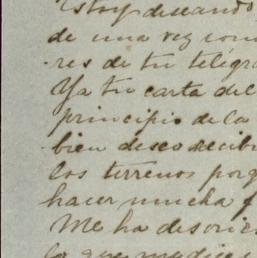 Estoy deseando
de una vez
res de tu telegra
Ya tu carta del
principio de la
bien deseo recibi
los terrenos porq
hacer mucha
Me ha desorie
lo que me dice